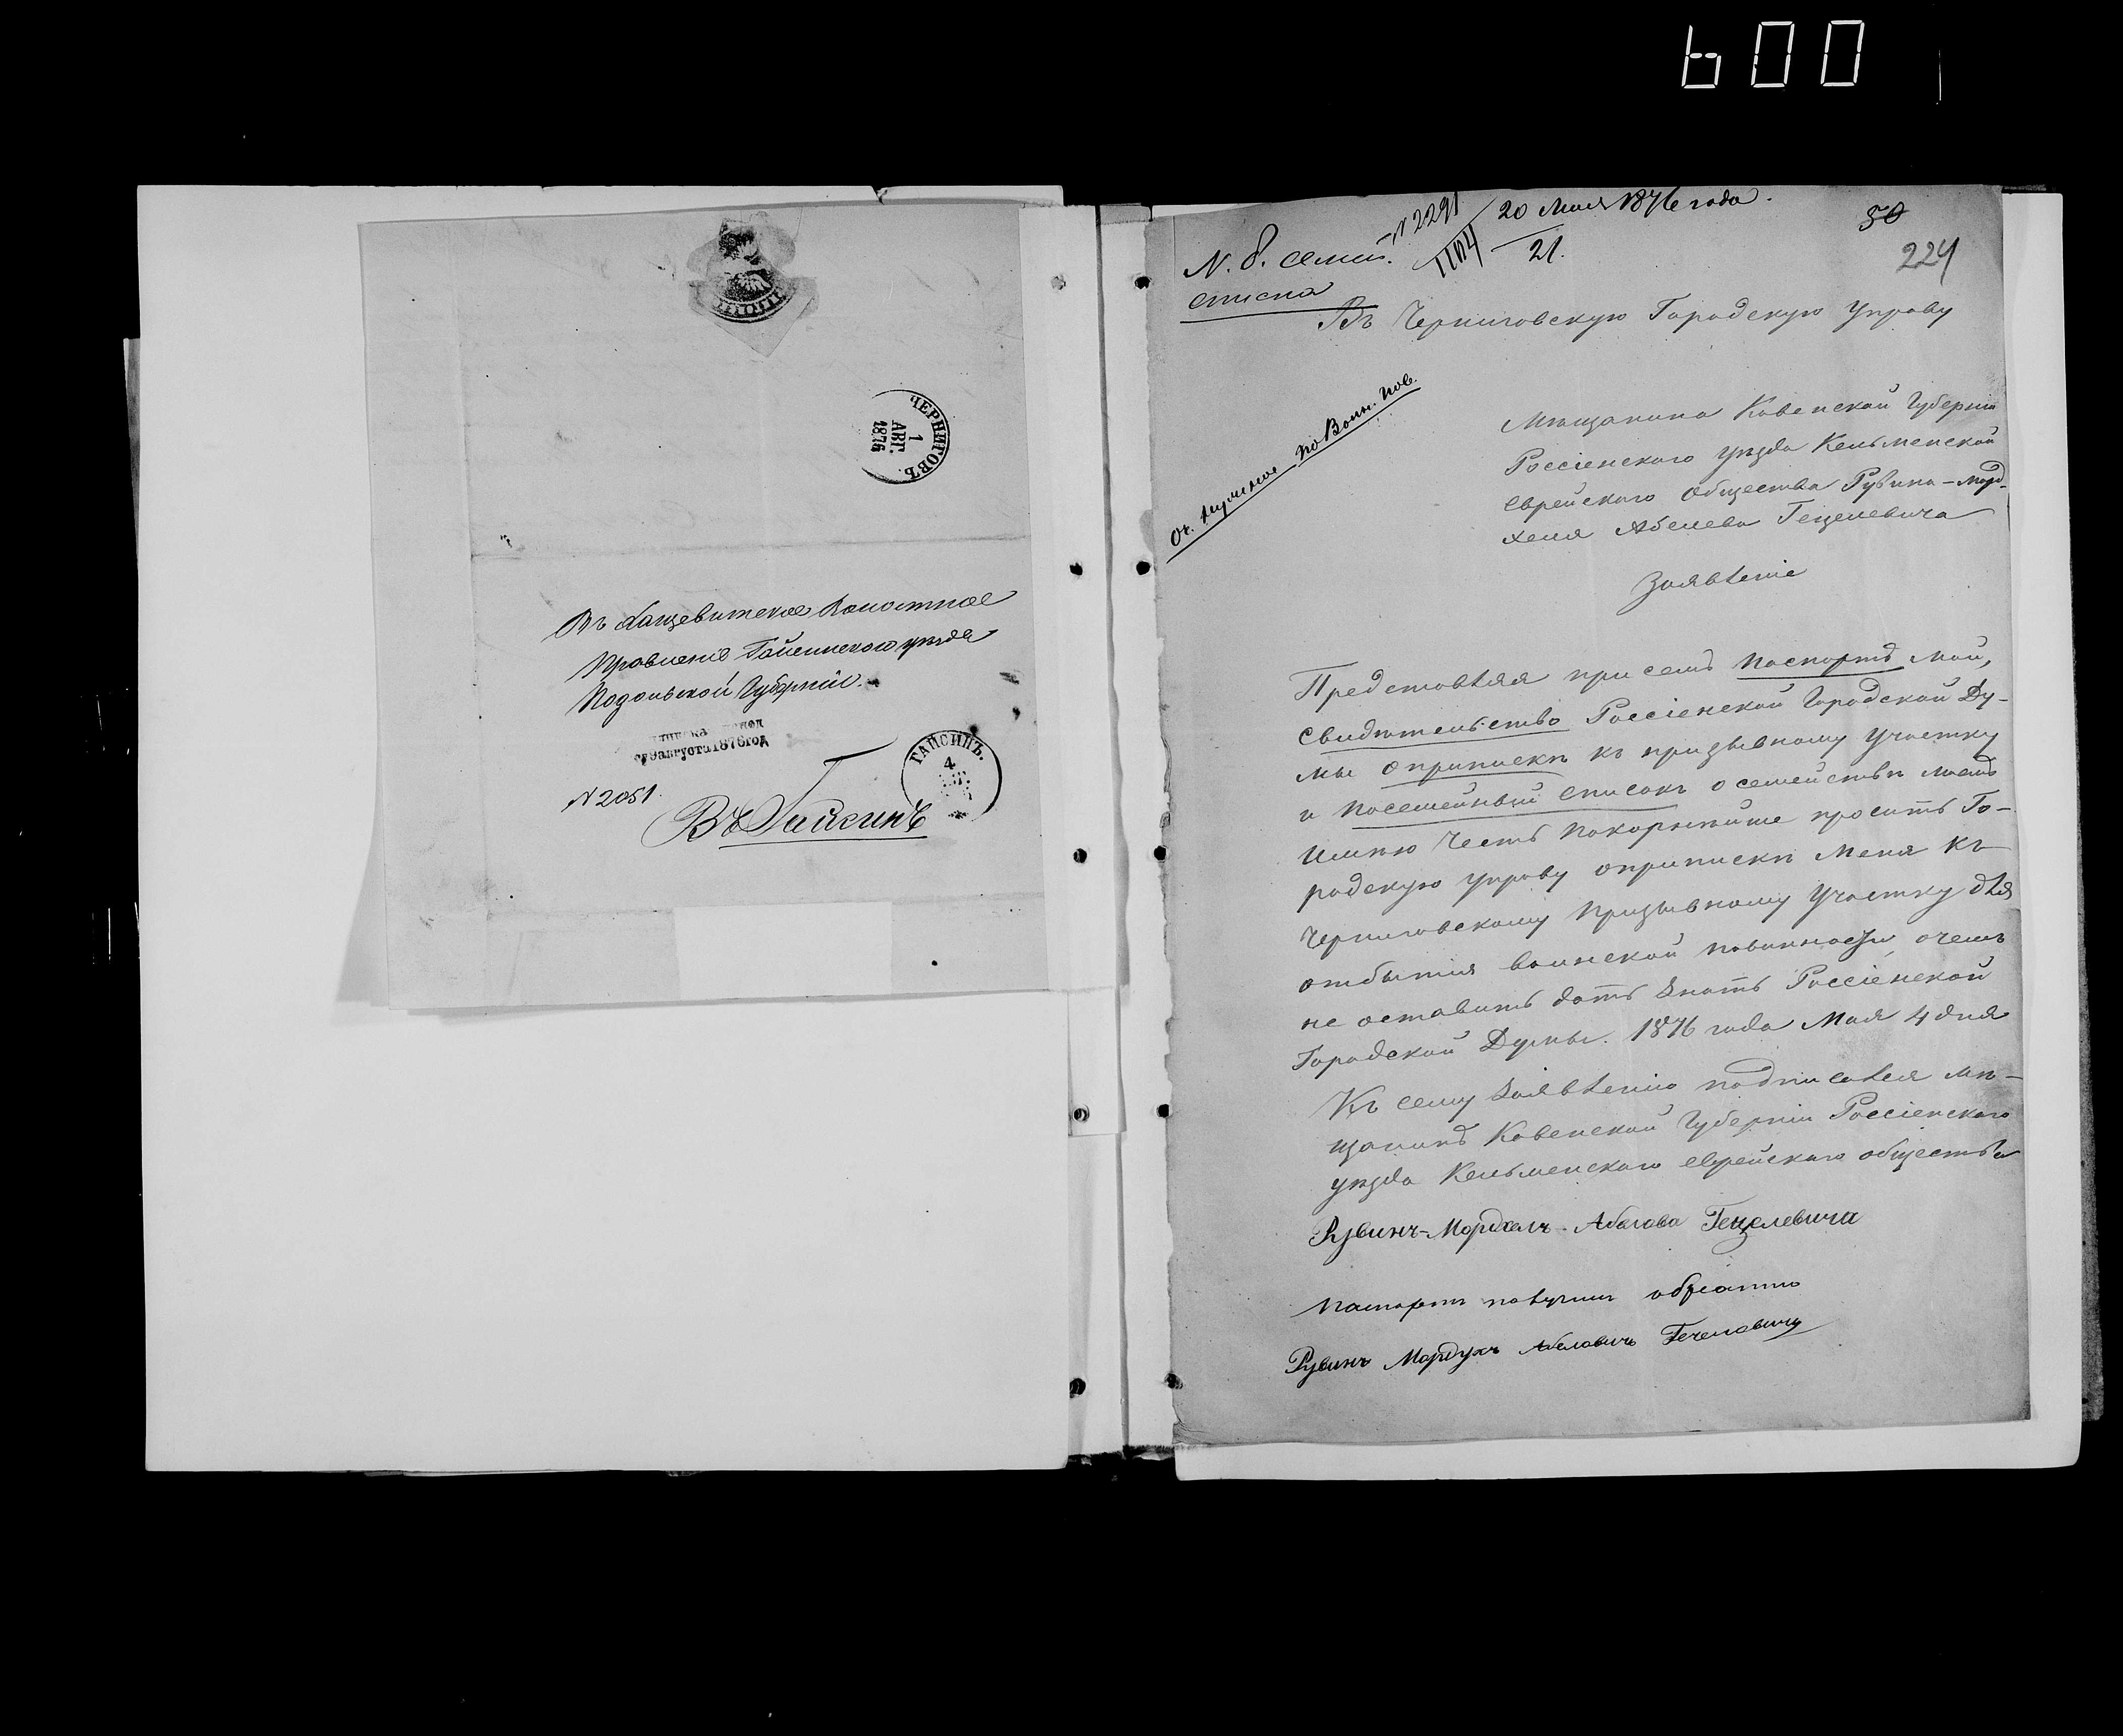 600
ЧЕРНИГОВЪ.
1
АВГ.
1876
Въ Хащеватское Волостное
Правленіе Гайсинского уѣзда
Подольской Губерніи.
9 августа 1876 год
ГАЙСИНЪ.
4
№ 2051.
Въ Гайсинъ
№ 2291
20 Мая 1876 года.
21.
50
224
N. 8. семей.
списка
Въ Черниговскую Городскую Управу
по Воин. пов.
Мѣщанина Ковенской Губерніи
Россіенскаго уѣзда Кельменской
Еврейскаго общества Рувина-Морд-
хеля Абелева Гецелевича
Заявленіе
Представляя при семъ паспортъ мой,
свидѣтельство Россіенской Городской Ду-
мы о припискѣ къ призывному участку
и посемейный списокъ о семействѣ моемъ
Имѣю честь покорнѣйше просить Го-
родскую управу о припискѣ меня къ
Черниговскому призывному участку для
отбытія воинской повинности, о чемъ
не оставить дать знать Россіенской
Городской Думы. 1876 года Мая 4 дня
Къ сему заявленію подписался мѣ-
щанинъ Ковенской Губерніи Россіенскаго
уѣзда Кельменскаго еврейскаго общества
Рувинъ-Мордхелъ Абелова Гецелевича
Паспортъ получилъ обратно
Рувинъ Мордухъ Абеловичъ Гечелевичъ